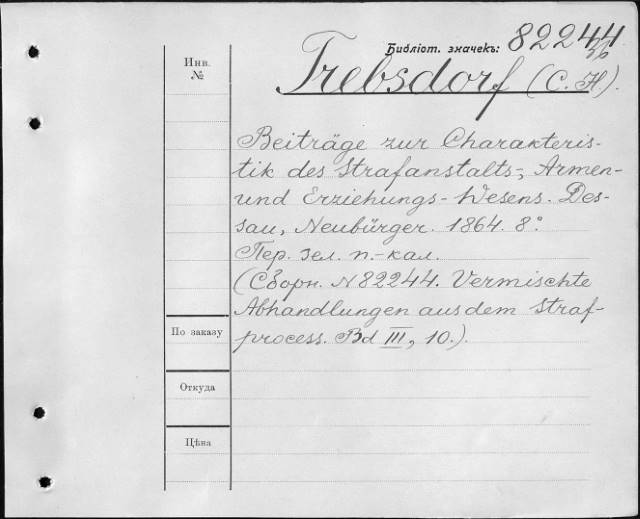 Библіот. значекъ: 82244
36
Инв.
№
Trebsdorf (C. H.).
Beiträge zur Charakteris-
tik des Strafanstalts-, Armen-
und Erziehungs-Wesens. Des-
sau, Neubürger. 1864. 8°.
Пер. зел. п.-кал.
(Сборн. №82244. Vermischte
Abhandlungen aus dem Straf-
process. Bd III, 10.).
По заказу
Откуда
Цѣна